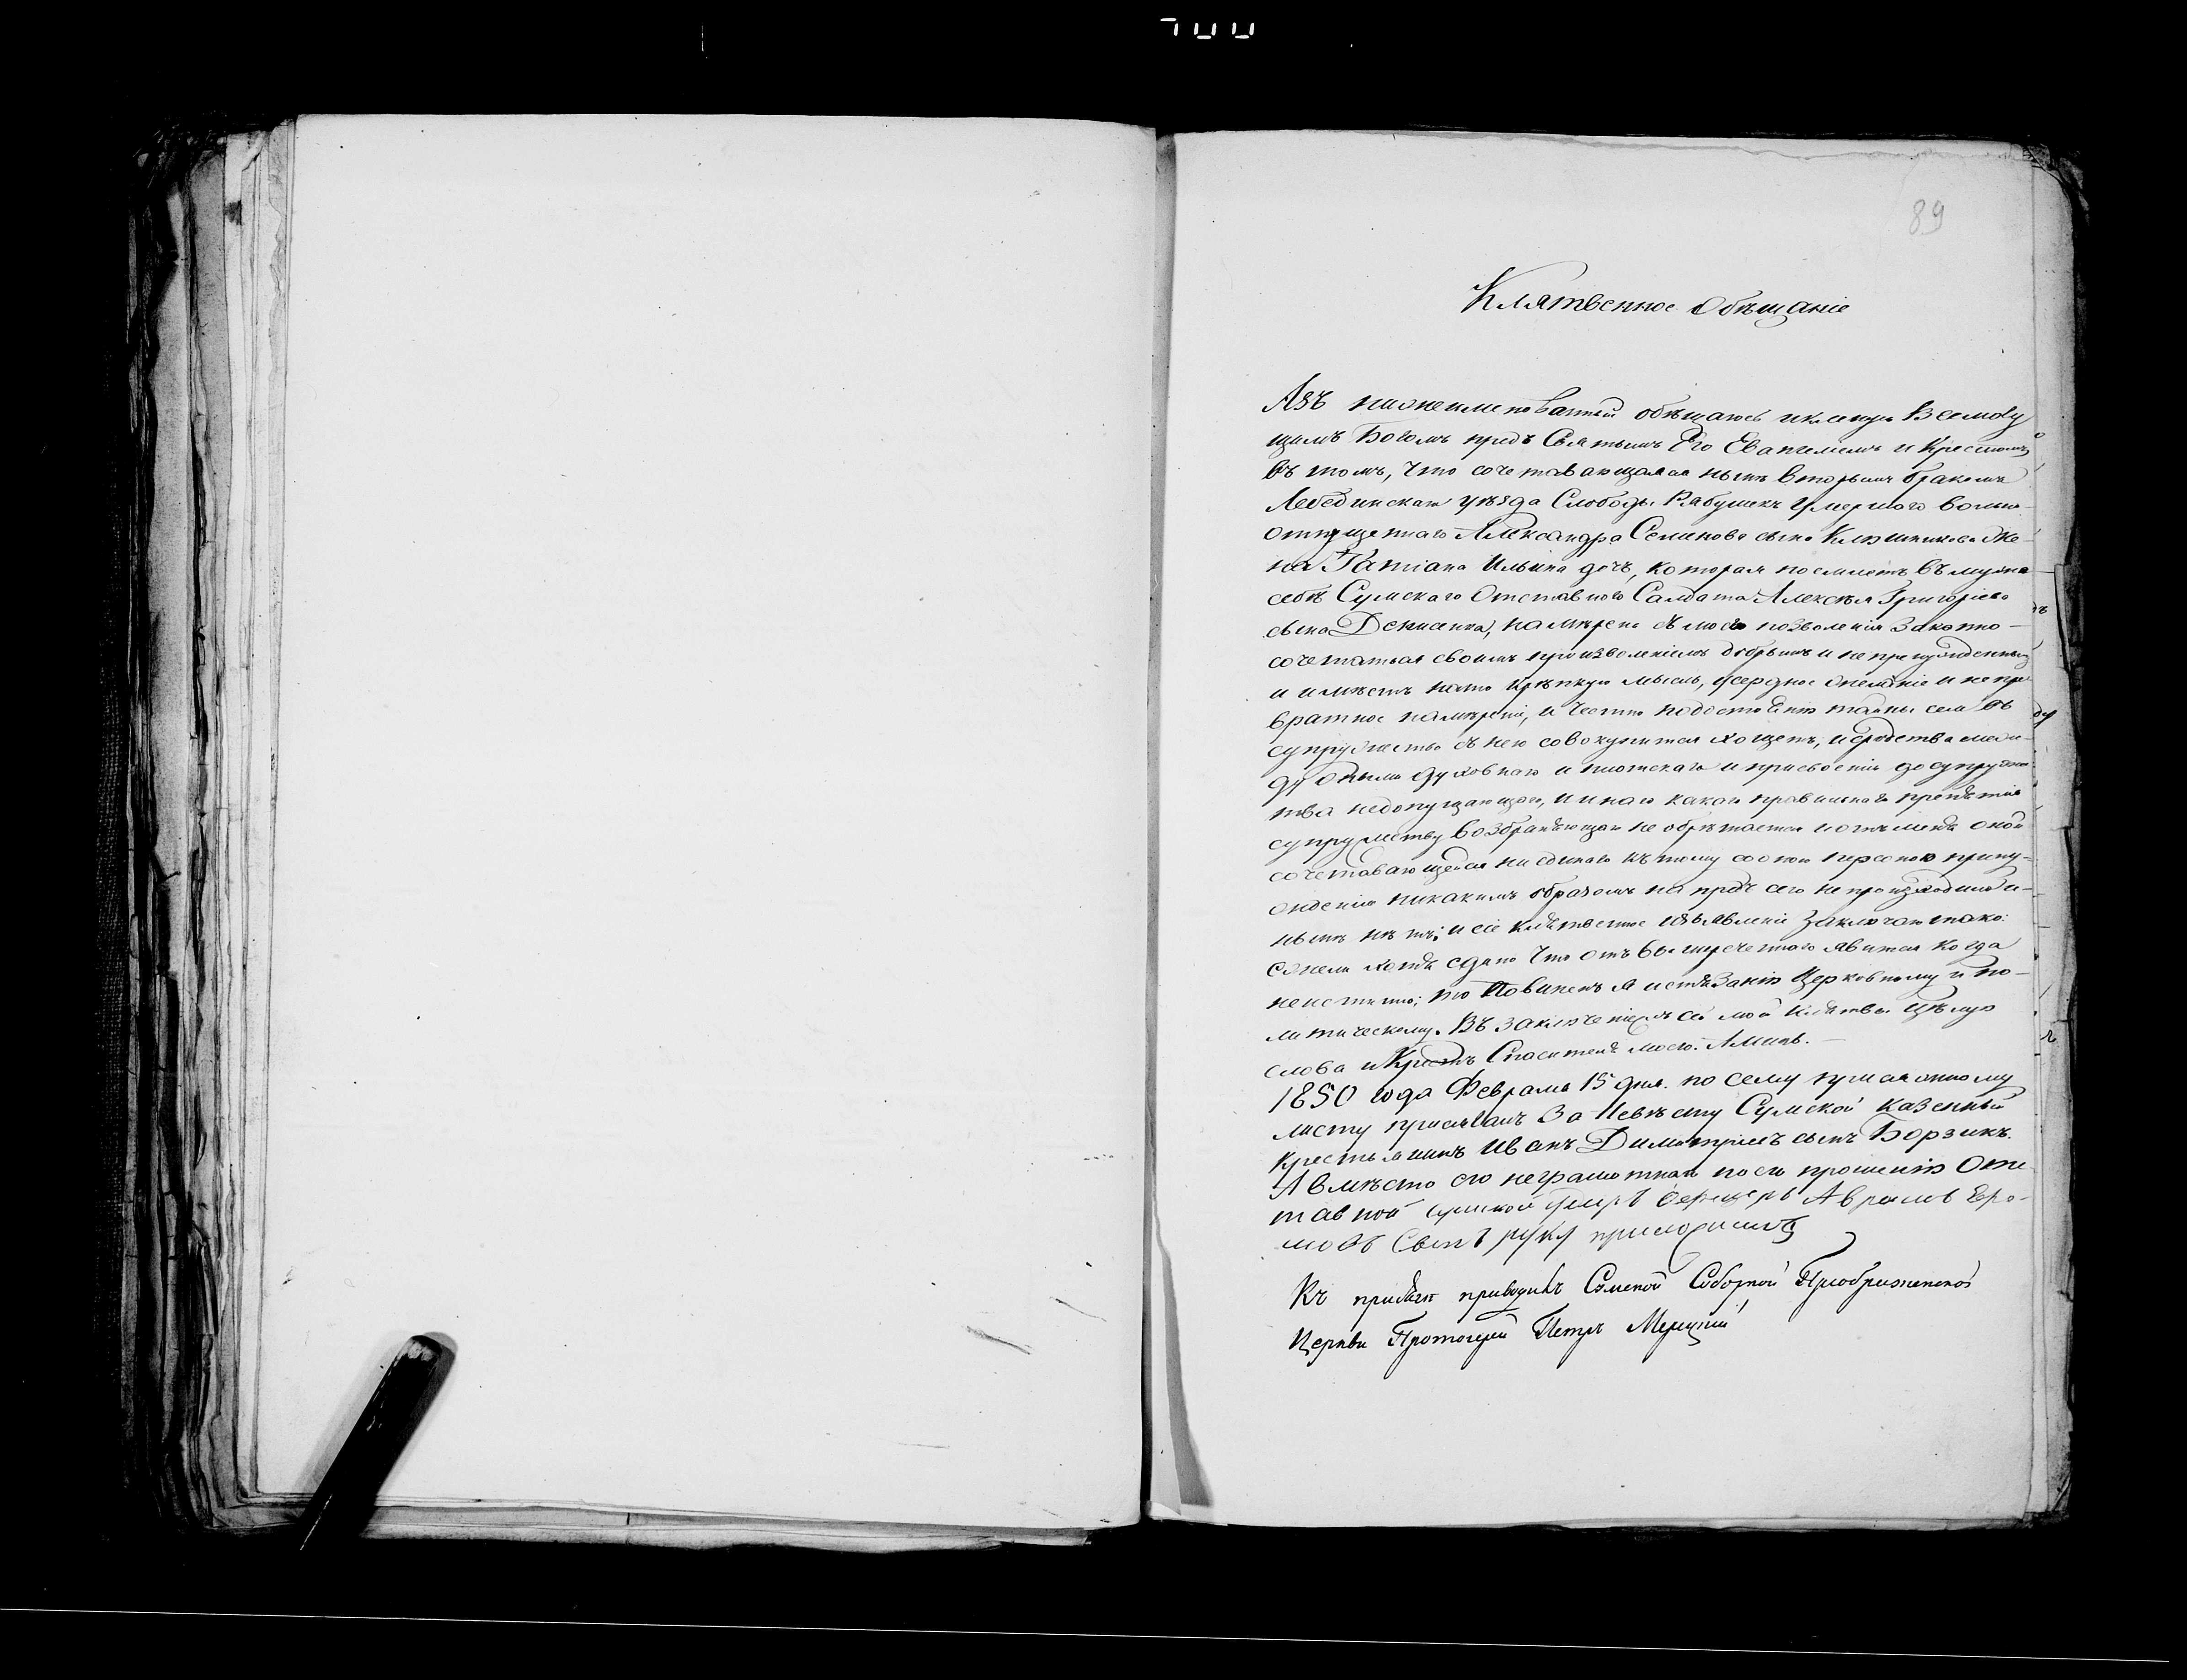 89
Клятвенное Обѣщаніе
Азъ нижеименованный обѣщаюсь и клянусь Всемогу
щимъ Богомъ предъ Святымъ Его Евангеліемъ и Крестомъ
въ томъ, что сочетавающаяся нынѣ вторымъ бракомъ
Лебединскаго уѣзда Слободы Рябушекъ умершаго вольно-
отпущеннаго Александра Семенова сына Же-
на Татіана Ильина дочь, которая поемлетъ въ мужа
себѣ Сумскаго Отставного Салдата Алексѣя Григоріева
сына Денисенка, намѣрена съ моего позволенія Законно-
сочетаться своимъ произволеніемъ добрымъ и не принужденнымъ
и имѣетъ на то крѣпкую мысль, усердное желаніе и не пре
вратное намѣреніе, и честно по достоянію тайны сея въ
супружество съ нею совокупится хощетъ, и сродства меж-
ду оными духовнаго и плотскаго и присвоенія до супруже-
тва недопущающаго, и инаго какого правильнаго препятія
супружеству возбраняющаго не обрѣтается и отъ меня оной
сочетавающейся ни единаго къ тому со оною персоною прину-
жденія никакимъ образомъ на предъ сего не произходило и-
нынѣ нѣтъ; и сіе клятвенное изъявленіе заключаю тако:
Ежели хотя едино что отъ вышереченнаго явится когда
неистинно; то Повиненъ я истязанію Церковному и по-
литическому. Въ заключеніе сей моей Клятвы цѣлую
слова и Крестъ Спасителя моего. Аминь.
1850 года Февраля 15 дня. по сему присяжному
листу присягалъ За Невѣсту Сумской казенный
крестьянинъ Иванъ Димитріевъ сынъ Борзикъ.
А вмѣсто его неграмотнаго по его прошенію Отс
тавной Аврамъ Ере-
мовъ Сынъ руку приложилъ
Къ присягѣ приводилъ Сумской Соборной Преображенской
Церкви Протоіерей Петръ